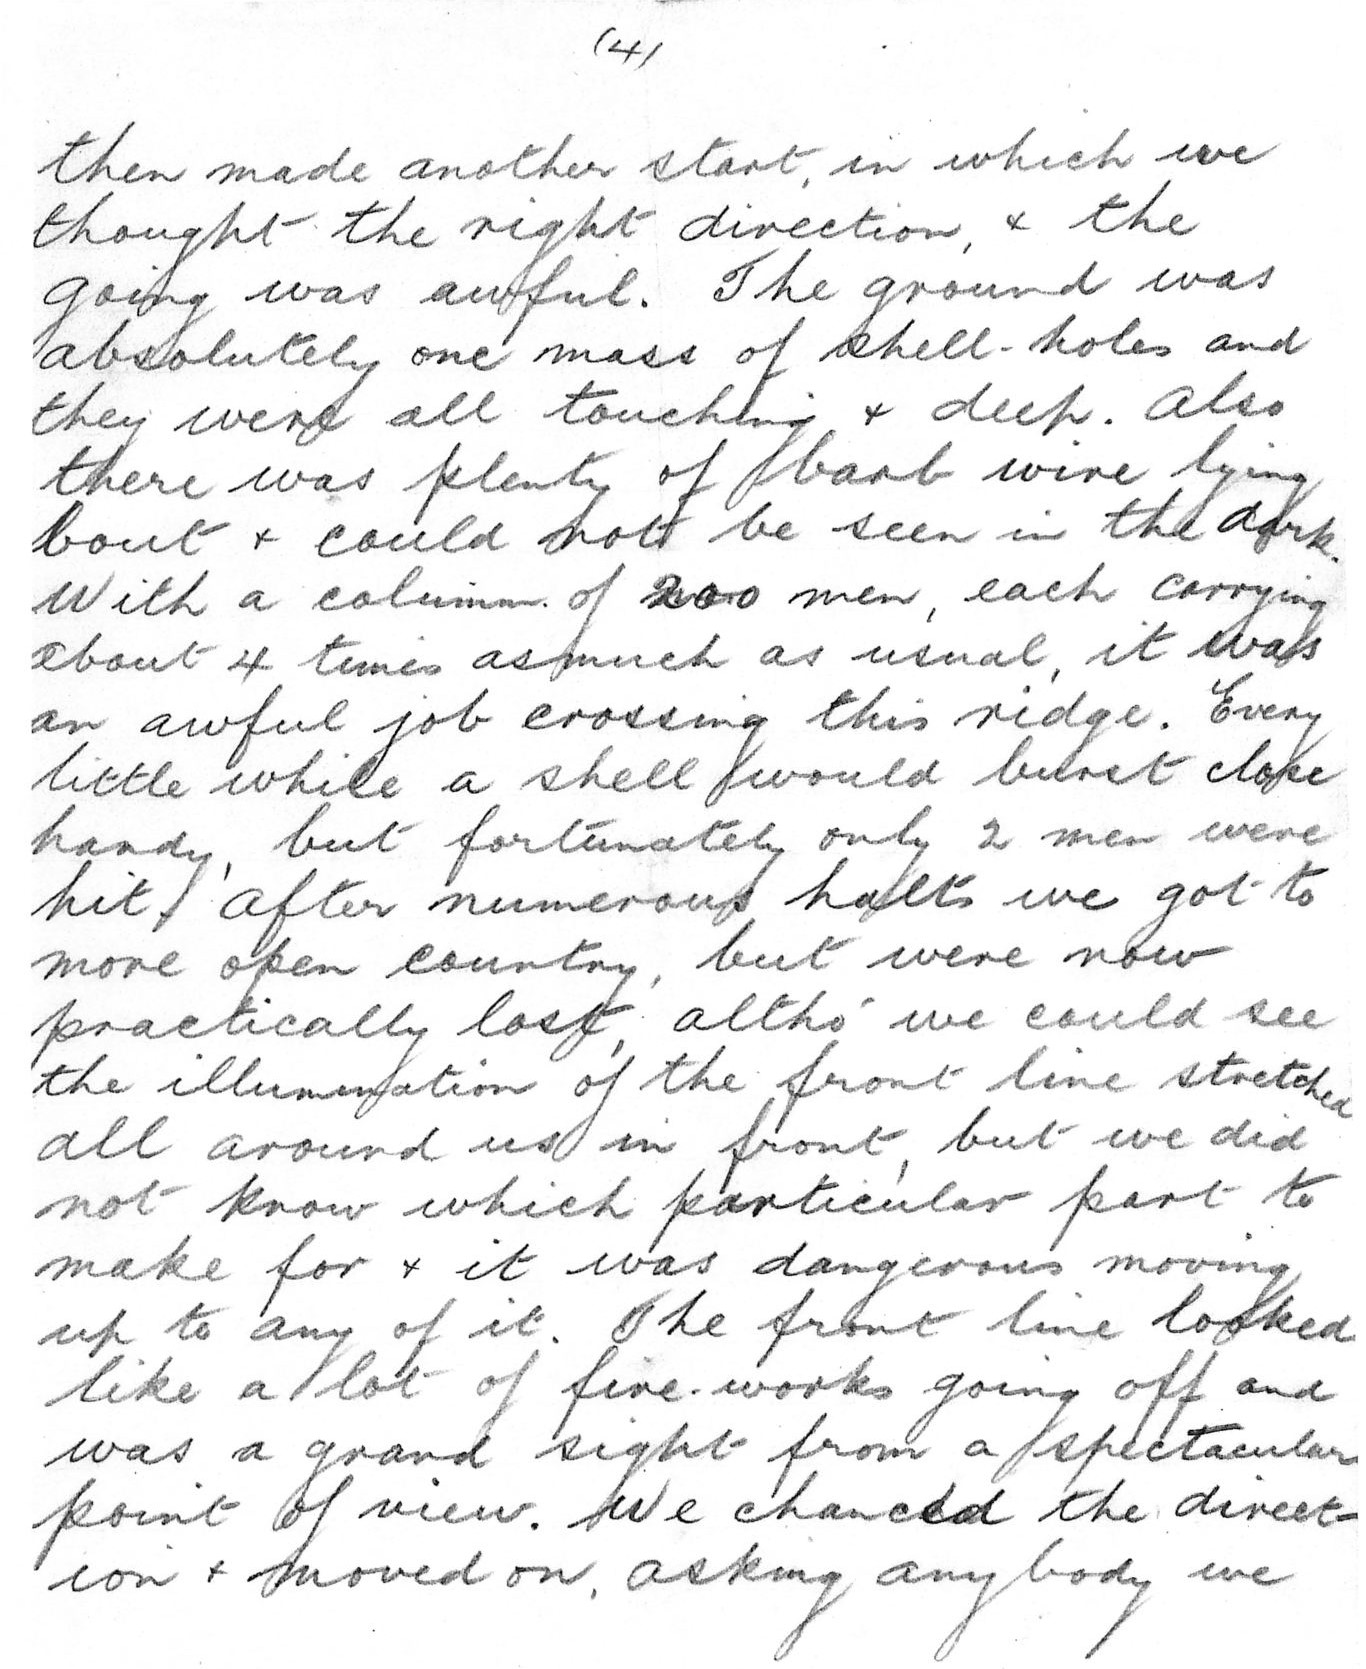 (4)
then made another start, in which we
thought the right direction, & the
going was awful. The ground was
absolutely one mass of shell-holes and
they were all touching & deep. Also
there was plenty of barb wire lying
bout & could not be seen in the dark.
With a column of 200 men, each carrying
about 4 times as much as usual, it was
an awful job crossing this ridge. Every
little while a shell would burst close
handy, but fortunately only 2 men were
hit. After numerous halts we got to
more open country, but were now
practically lost, altho' we could see
the illumination of the front line stretched
all around us in front, but we did
not know which particular part to
make for & it was dangerous moving
up to any of it. The front line looked
like a lot of fire-works going off and
was a grand sight from a spectacular
point of view. We chanced the direct-
ion & moved on, asking anybody we